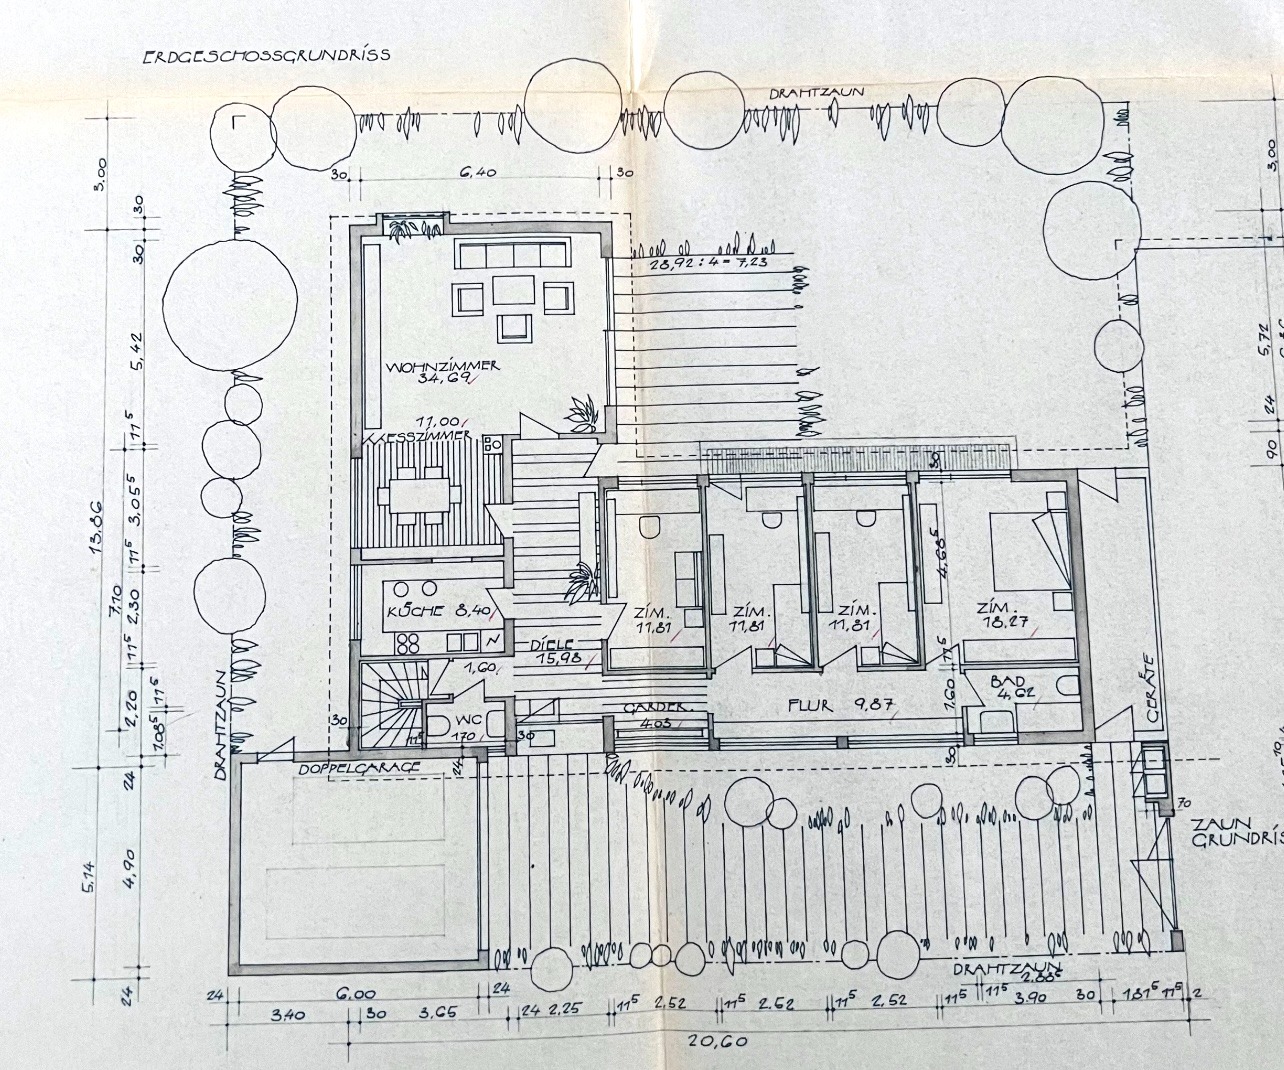 ERDGESCHOSSGRUNDRISS
DRAHTZAUN
3.00
30
6,40
30
3,00
30
30
28,92 : 4 = 7,23
5,42
5,72
WOHNZIMMER
34,69
11,00
ESSZIMMER
11⁵
24
90
30
3,05⁵
13.86
4,68⁵
11⁵
7.10
2,30
KÜCHE 8,40
ZIM.
11,81
ZIM.
11,81
ZIM.
11,81
ZIM.
18.27
11⁵
DIELE
15,98
11⁵
1,60
BAD
4,62
GERÄTE
2,20
11⁵
1.08⁵
WC
1.70
GARDER.
4.03
FLUR 9,87
1,60
30
11⁵
30
24
30
DRAHTZAUN
DOPPELGARAGE
24
70
ZAUN
GRUNDRIS
5,14
4,90
DRAHTZAUN
2.88⁵
24
24
6,00
24
3,40
30
3,65
24
2,25
11⁵
2,52
11⁵
2,52
11⁵
2,52
11⁵
11⁵
3,90
30
1,81⁵
11⁵
2
20,60